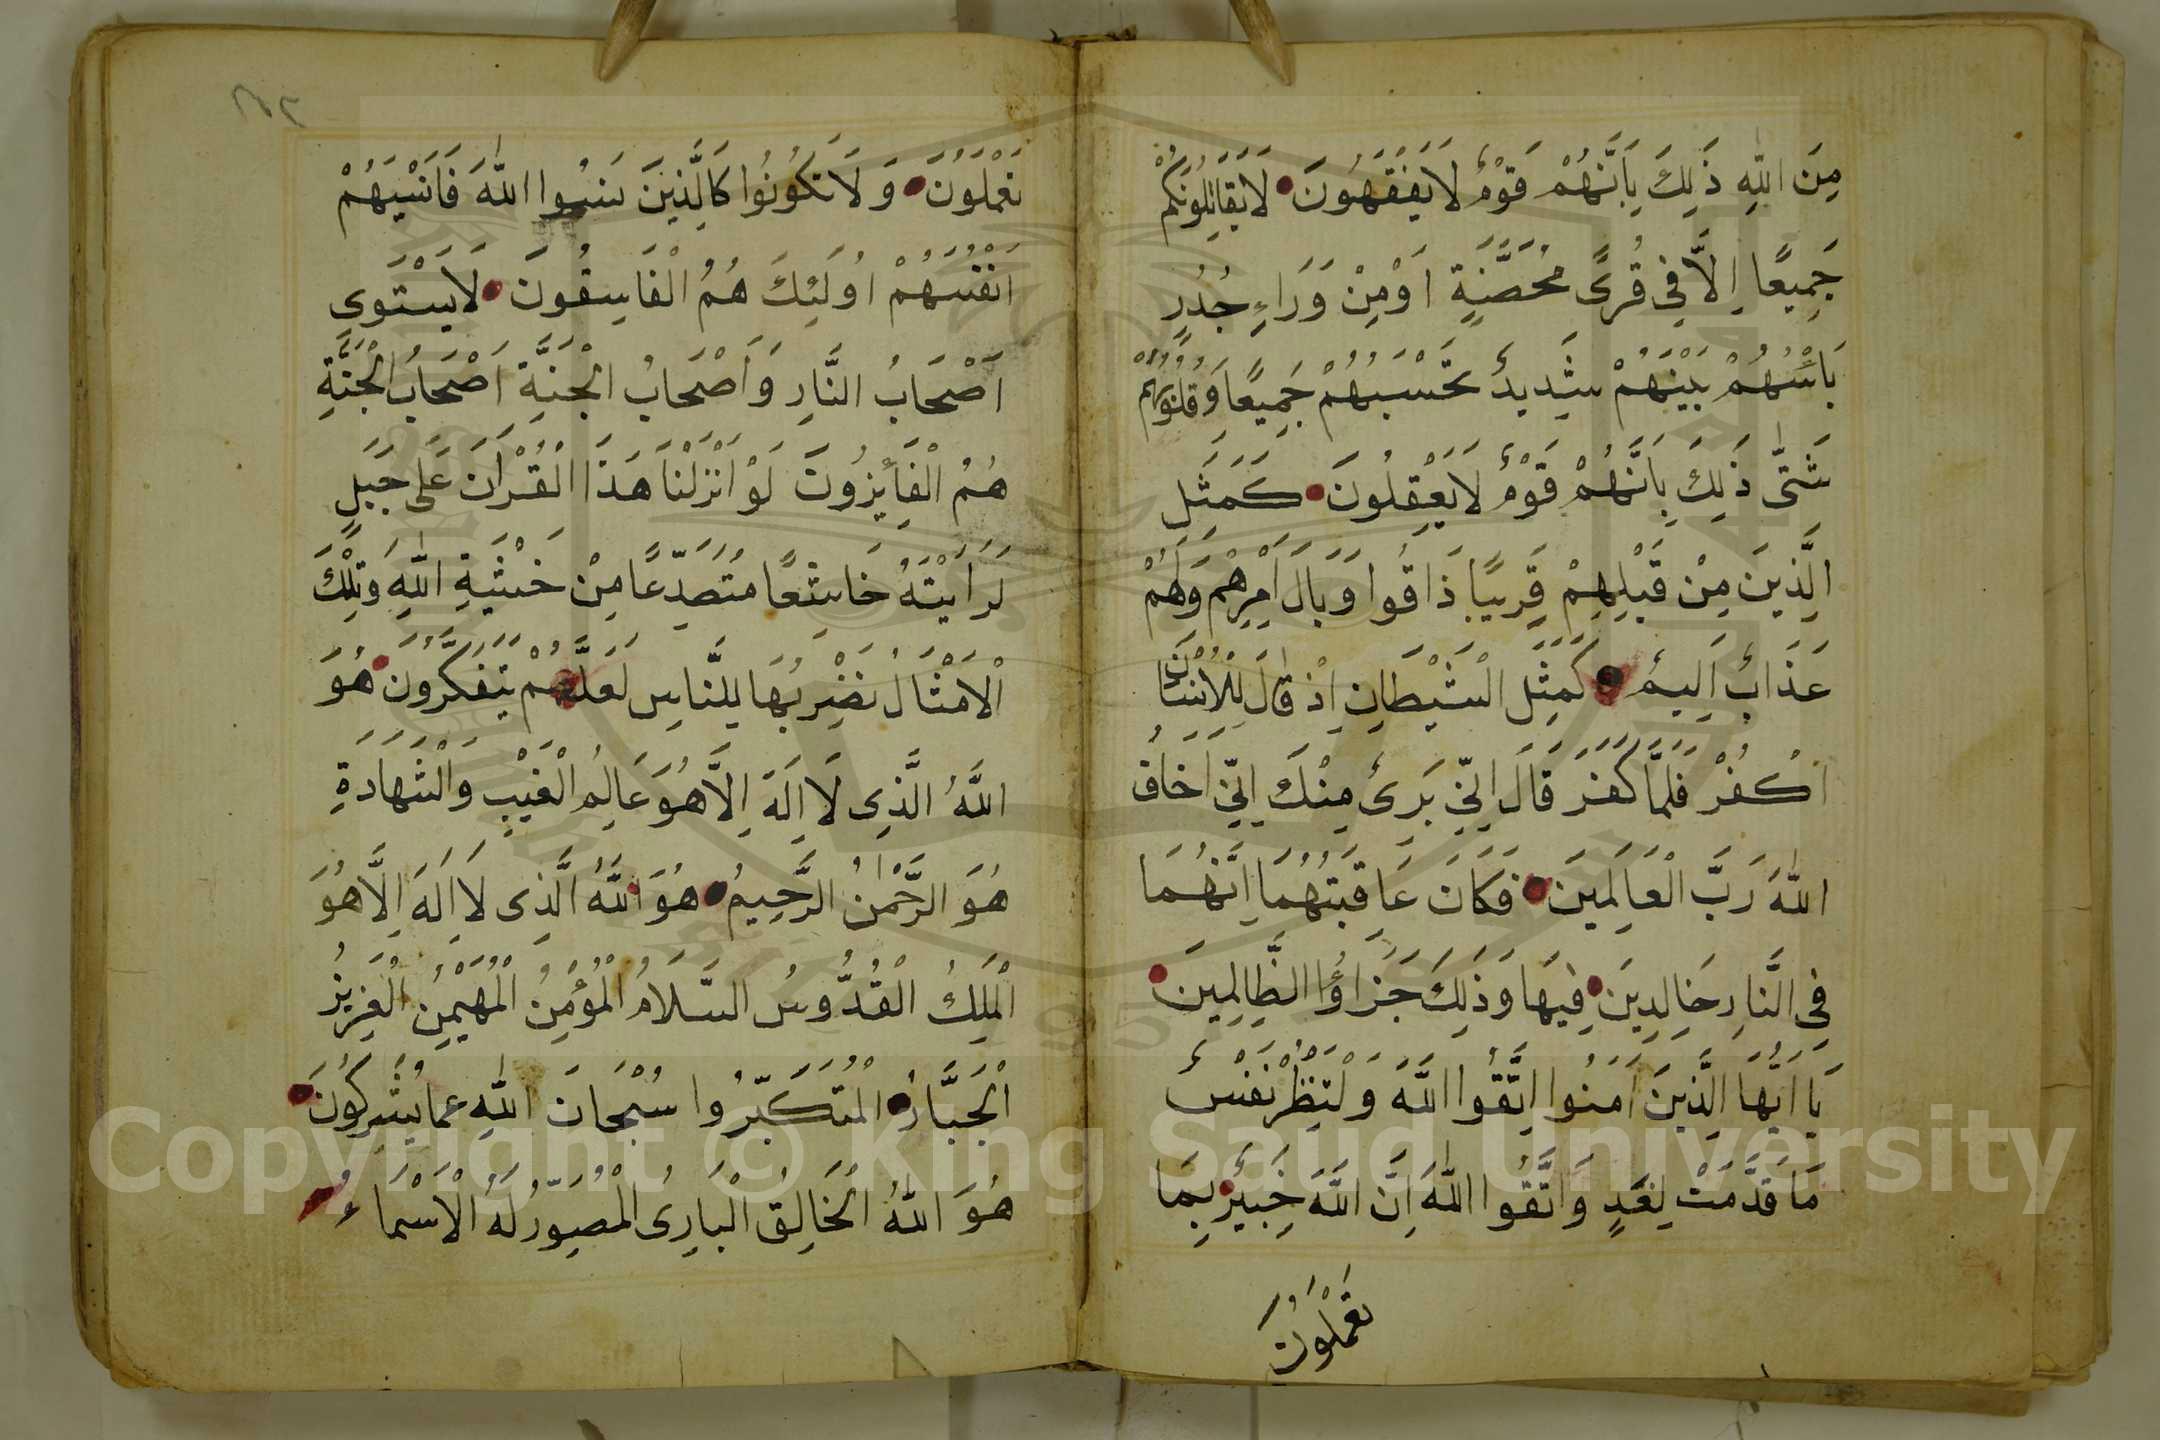 مِنَ اللّٰهِ ذَلِكَ بِاَنَّهُمْ قَوْمٌ لَا يَفْقَهُونَ لَا يُقَاتِلُونَكُمْ
جَمِيعًا اِلَّا فِي قُرًى مُحَصَّنَةٍ اَوْ مِنْ وَرَاءِ جُدُرٍ
بَاْسُهُمْ بَيْنَهُمْ شَدِيدٌ تَحْسَبُهُمْ جَمِيعًا وَقُلُوبُهُمْ
شَتَّى ذَلِكَ بِاَنَّهُمْ قَوْمٌ لَا يَعْقِلُونَ كَمَثَلِ
الَّذِينَ مِنْ قَبْلِهِمْ قَرِيبًا ذَاقُوا وَبَالَ اَمْرِهِمْ وَلَهُمْ
عَذَابٌ اَلِيمٌ كَمَثَلِ الشَّيْطَانِ اِذْ قَالَ لِلْاِنْسَانِ
اكْفُرْ فَلَمَّا كَفَرَ قَالَ اِنِّي بَرِىءٌ مِنْكَ اِنِّي اَخَافُ
اللّٰهَ رَبَّ الْعَالَمِينَ فَكَانَ عَاقِبَتَهُمَا اَنَّهُمَا
فِي النَّارِ خَالِدِينَ فِيهَا وَذَلِكَ جَزَاؤُا الظَّالِمِينَ
يَا اَيُّهَا الَّذِينَ اَمَنُوا اتَّقُوا اللّٰهَ وَلْتَنْظُرْ نَفْسٌ
مَا قَدَّمَتْ لِغَدٍ وَاتَّقُوا اللّٰهَ اِنَّ اللّٰهَ خَبِيرٌ بِمَا
تَعْمَلُونَ
تَعْمَلُونَ وَلَا تَكُونُوا كَالَّذِينَ نَسُوا اللّٰهَ فَاَنْسَيهُمْ
اَنْفُسَهُمْ اُولَئِكَ هُمُ الْفَاسِقُونَ لَا يَسْتَوِي
اَصْحَابُ النَّارِ وَاَصْحَابُ الْجَنَّةِ اَصْحَابُ الْجَنَّةِ
هُمُ الْفَائِزُونَ لَوْ اَنْزَلْنَا هَذَا الْقُرْاَنَ عَلَى جَبَلٍ
لَرَاَيْتَهُ خَاشِعًا مُتَصَدِّعًا مِنْ خَشْيَةِ اللّٰهِ وَتِلْكَ
الْاَمْثَالُ نَضْرِبُهَا لِلنَّاسِ لَعَلَّهُمْ يَتَفَكَّرُونَ هُوَ
اللّٰهُ الَّذِي لَا اِلَهَ اِلَّا هُوَ عَالِمُ الْغَيْبِ وَالشَّهَادَةِ
هُوَ الرَّحْمٰنُ الرَّحِيمُ هُوَ اللّٰهُ الَّذِى لَا اِلَهَ اِلَّا هُوَ
الْمَلِكُ الْقُدُّوسُ السَّلَامُ الْمُؤْمِنُ الْمُهَيْمِنُ الْعَزِيزُ
الْجَبَّارُ الْمُتَكَبِّرُوا سُبْحَانَ اللّٰهِ عَمَّا يُشْرِكُونَ
هُوَ اللّٰهُ الْخَالِقُ الْبَارِىُ الْمُصَوِّرُ لَهُ الْاَسْمَاءُ
Copyright © King Saud University